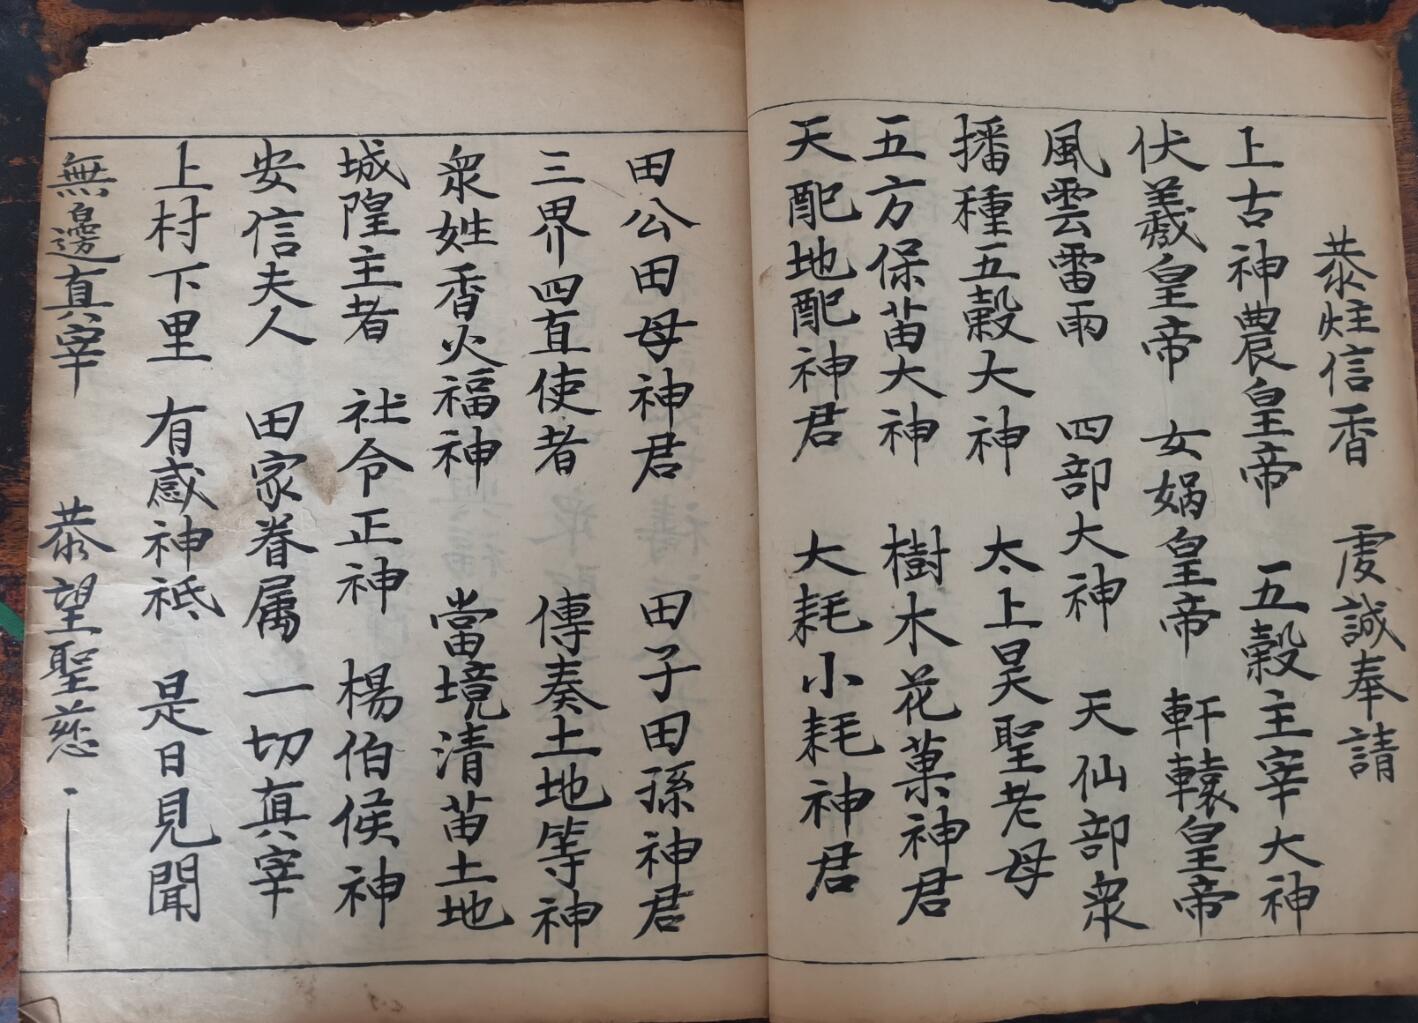 恭炷信香　虔誠奉請
上古神農皇帝　五穀主宰大神
伏羲皇帝　女媧皇帝　軒轅皇帝
風雲雷雨　四部大神　天仙部衆
播種五穀大神　太上昊聖老母
五方保苗大神　樹木花菓神君
天配地配神君　大耗小耗神君
田公田母神君　田子田孫神君
三界四直使者　傳奏土地等神
衆姓香火福神　當境清苗土地
城隍主者　社令正神　楊伯侯神
安信夫人　田家眷属　一切真宰
上村下里　有感神祗　是日見聞
無邊真宰　恭望聖慈